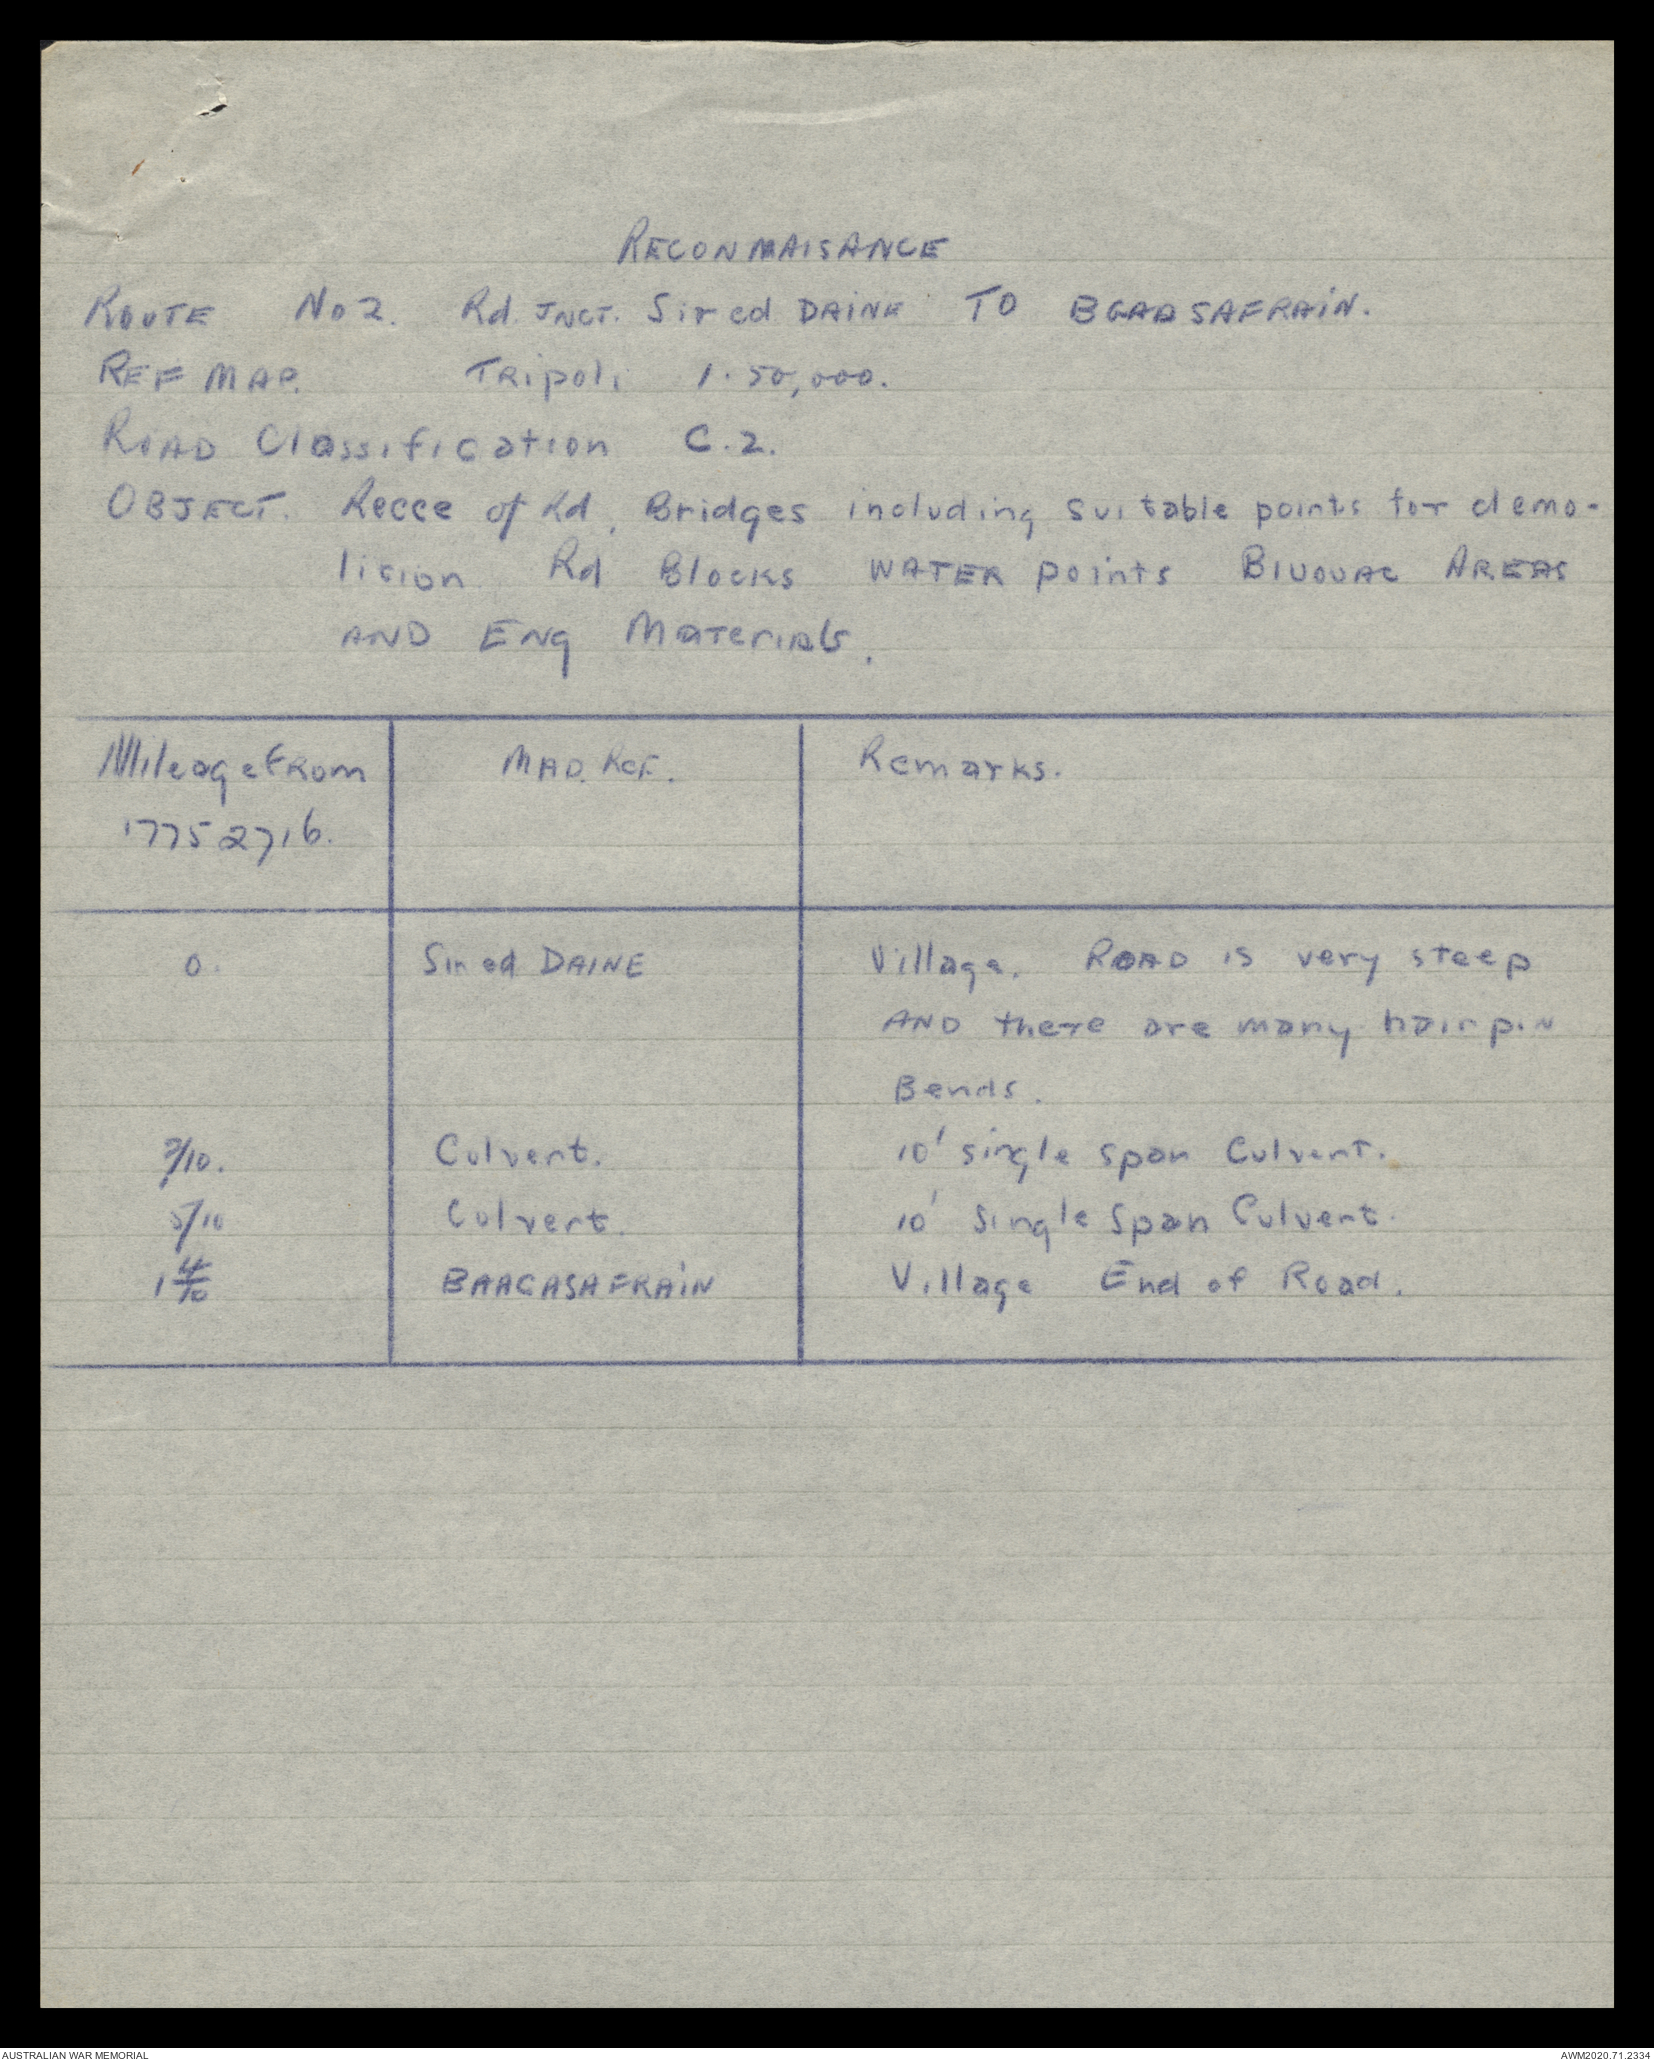 RECONMAISANCE
ROUTE No 2. Rd. JNCT. Sir ed DAINE TO BGAASAFRAIN.
REF MAP. TRipoli 1.50,000.
ROAD Classification C.2.
OBJECT. Recce of Rd, Bridges including suitable points for demo-
lision Rd Blocks WATER points BIVOUAC AREAS
AND ENg MATeriAls.
Mileage FRom MAP. REF. Remarks.
1775 2716.
0. Sir ed DAINE Village. ROAD is very steep
AND there are many hairpin
Bends.
/10. Culvert. 10' single span Culvert.
5/10 Culvert. 10' Single Span Culvert.
1 4/10 BAAGASAFRAIN Village End of Road.
AUSTRALIAN WAR MEMORIAL AWM2020.71.2334